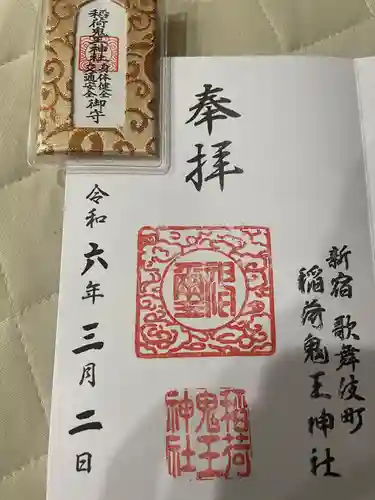 稲荷鬼王神社
身体健全
交通安全
御守
新宿 歌舞伎町
稲荷鬼王神社
奉拝
稲荷
鬼王
神社
令和六年三月二日